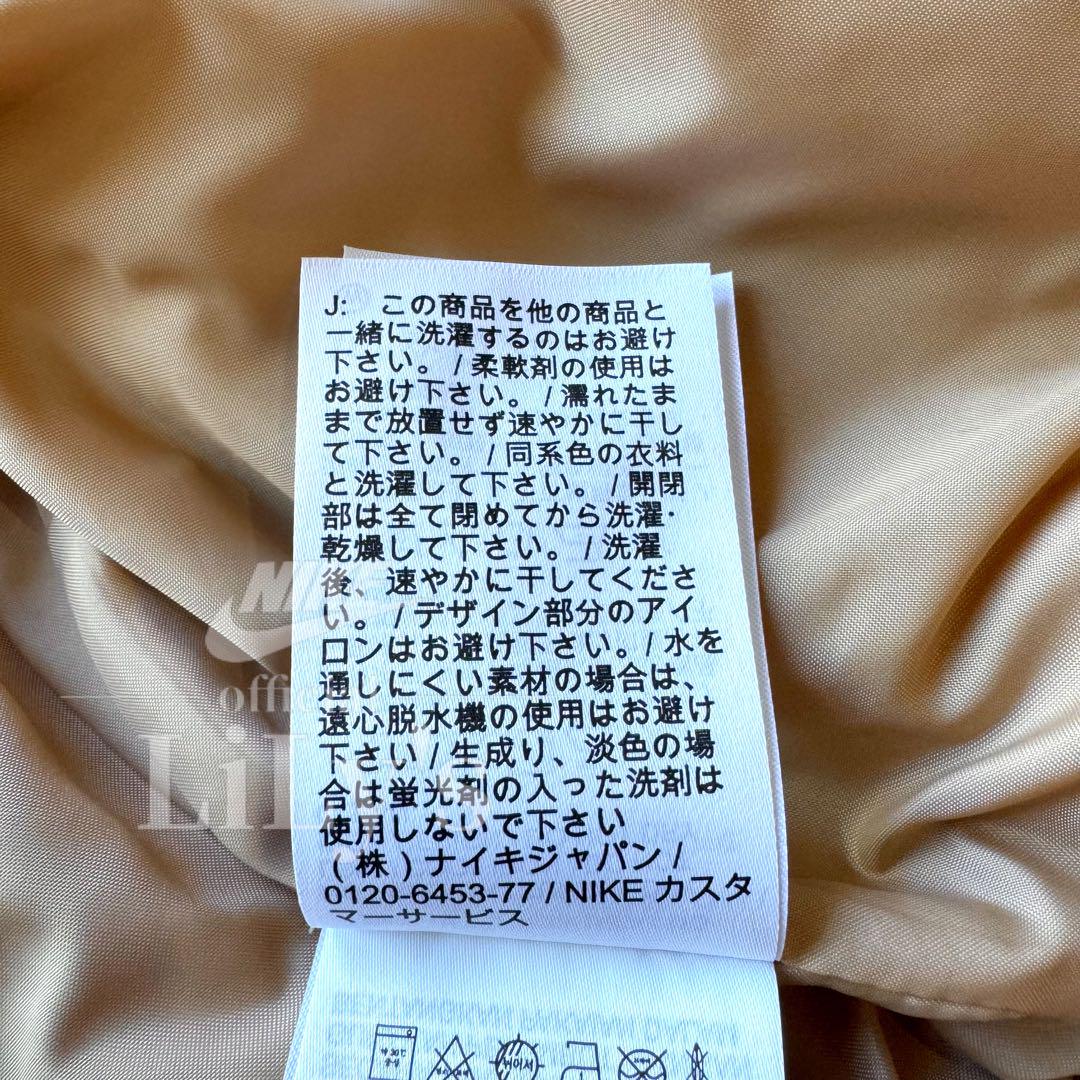 J: この商品を他の商品と
一緒に洗濯するのはお避け
下さい。/柔軟剤の使用は
お避け下さい。/濡れたま
まで放置せず速やかに干し
て下さい。/同系色の衣料
と洗濯して下さい。/開閉
部は全て閉めてから洗濯·
乾燥して下さい。/洗濯
後、速やかに干してくださ
い。/デザイン部分のアイ
ロンはお避け下さい。/水を
通しにくい素材の場合は、
遠心脱水機の使用はお避け
下さい/生成り、淡色の場
合は蛍光剤の入った洗剤は
使用しないで下さい
(株)ナイキジャパン/
0120-6453-77 / NIKE カスタ
マーサービス
NIKE
약 30℃
중성
드라이